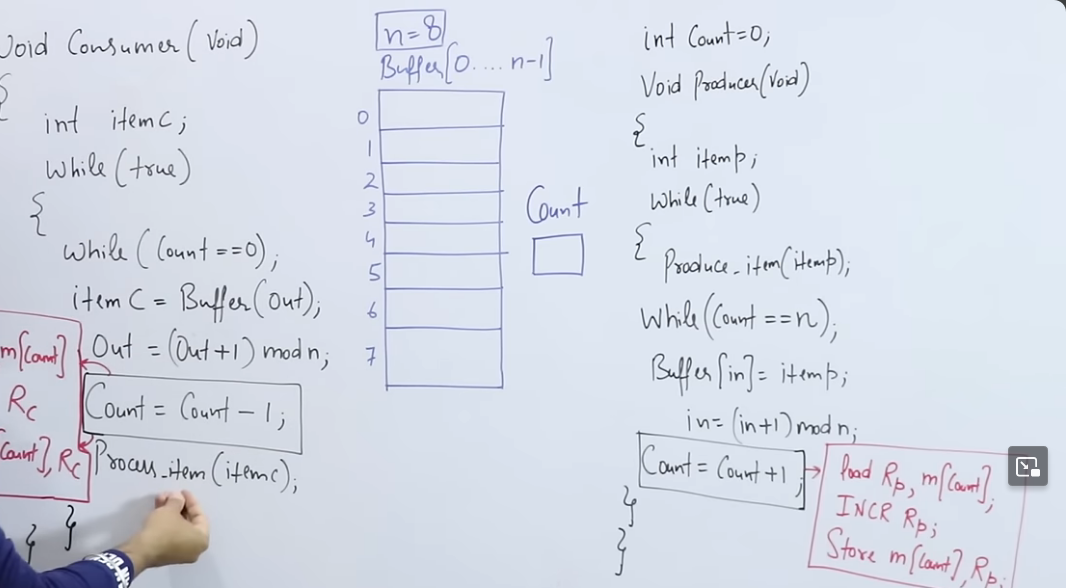 Void Consumer(Void)
{
int itemC;
While(true)
{
While(Count==0);
itemC = Buffer(Out);
Out = (Out+1) mod n;
Count = Count - 1;
Process_item(itemc);
}
}
m[Count]
Rc
Count], Rc
n=8
Buffer[0....n-1]
0
1
2
3
4
5
6
7
Count
int Count=0;
Void Producer(Void)
{
int itemp;
While(true)
{
Produce_item(itemp);
While(Count==n);
Buffer[in]=itemp;
in=(in+1)mod n;
Count = Count+1;
}
}
load Rp, m[Count];
INCR Rp;
Store m[Count], Rp;